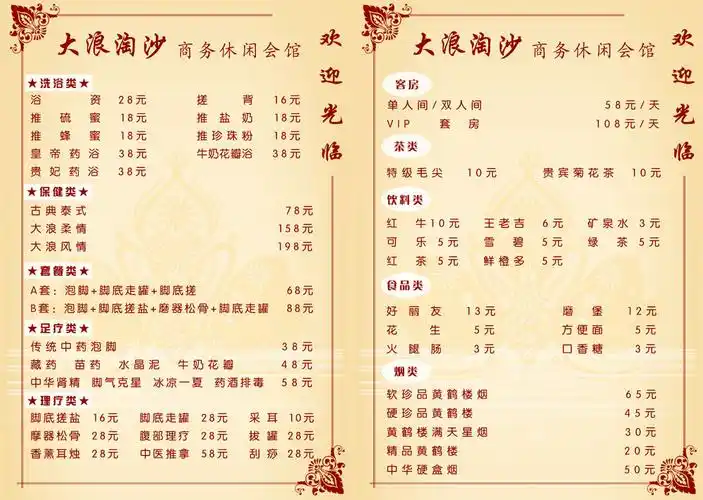 大浪淘沙 商务休闲会馆
欢迎光临
★洗浴类★
浴资 28元 搓背 16元
推硫蜜 18元 推盐奶 18元
推蜂蜜 18元 推珍珠粉 18元
皇帝药浴 38元 牛奶花瓣浴 38元
贵妃药浴 38元
★保健类★
古典泰式 78元
大浪柔情 158元
大浪风情 198元
★套餐类★
A套：泡脚+脚底走罐+脚底搓 68元
B套：泡脚+脚底搓盐+磨器松骨+脚底走罐 88元
★足疗类★
传统中药泡脚 38元
藏药 苗药 水晶泥 牛奶花瓣 48元
中华肾精 脚气克星 冰凉一夏 药酒排毒 58元
★理疗类★
脚底搓盐 16元 脚底走罐 28元 采耳 10元
摩器松骨 28元 腹部理疗 28元 拔罐 28元
香薰耳烛 28元 中医推拿 58元 刮痧 28元
大浪淘沙 商务休闲会馆
欢迎光临
客房
单人间/双人间 58元/天
VIP 套房 108元/天
茶类
特级毛尖 10元 贵宾菊花茶 10元
饮料类
红牛 10元 王老吉 6元 矿泉水 3元
可乐 5元 雪碧 5元 绿茶 5元
红茶 5元 鲜橙多 5元
食品类
好丽友 13元 磨堡 12元
花生 5元 方便面 5元
火腿肠 3元 口香糖 3元
烟类
软珍品黄鹤楼烟 65元
硬珍品黄鹤楼 45元
黄鹤楼满天星烟 30元
精品黄鹤楼 20元
中华硬盒烟 50元